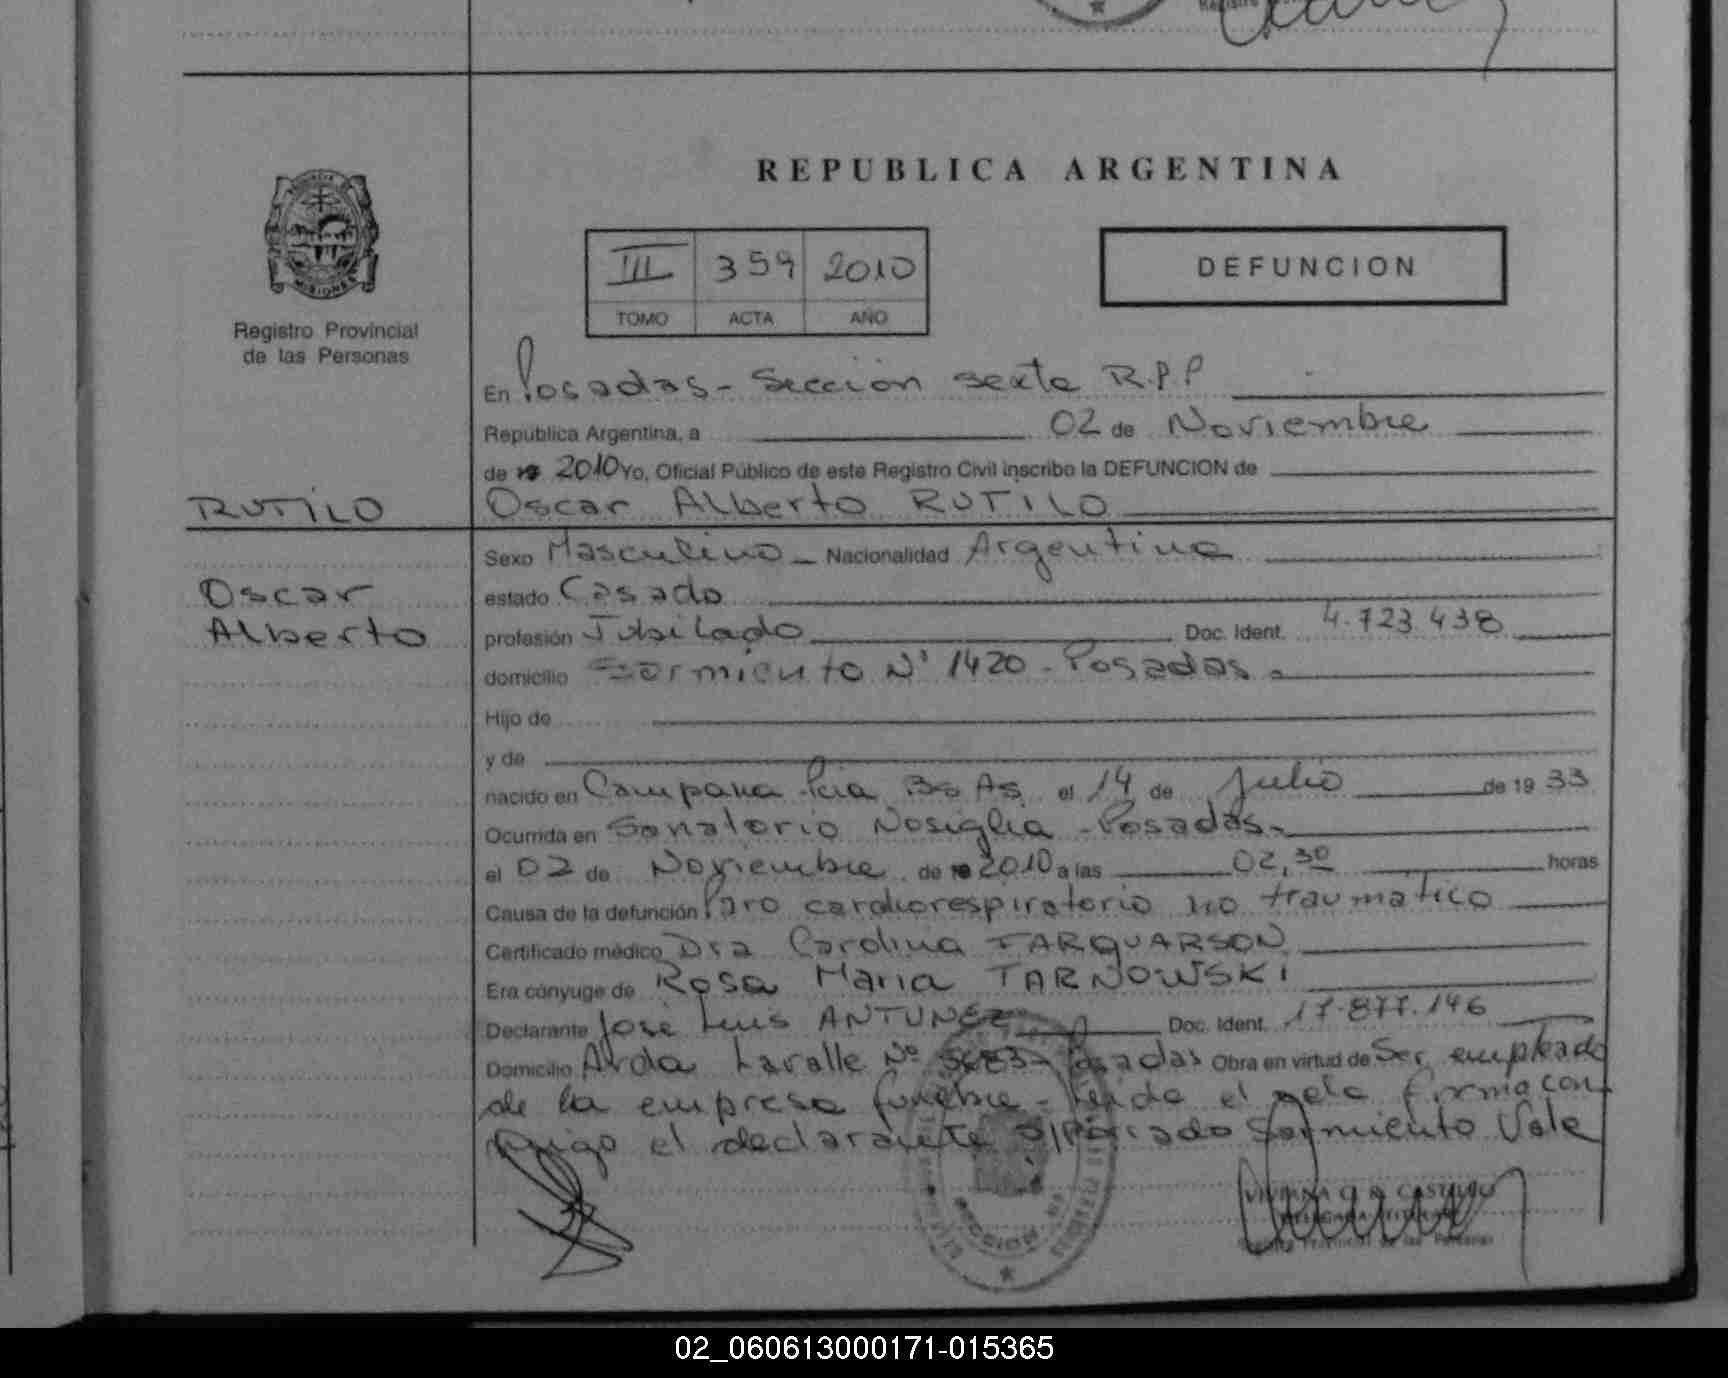 REPUBLICA ARGENTINA
MISIONES
Registro Provincial
de las Personas
III 359 2010
TOMO ACTA AÑO
DEFUNCION
En Posadas - Sección sexta R.P.P
Republica Argentina, a 02 de Noviembre
de 2010 Yo, Oficial Público de este Registro Civil inscribo la DEFUNCION de
RUTILO
Oscar Alberto RUTILO
Oscar
Alberto
Sexo Masculino - Nacionalidad Argentina
estado Casado
profesión Jubilado Doc. Ident. 4.723.438
domicilio Sarmiento Nº 1420 - Posadas -
Hijo de
y de
nacido en Campana Pcia Bs As el 14 de Julio de 19 33
Ocurrida en Sanatorio Nosiglia - Posadas -
el 02 de Noviembre de 2010 a las 02,30 horas
Causa de la defunción Paro cardiorespiratorio no traumatico
Certificado médico Dra Carolina FARQUARSON
Era cónyuge de Rosa Maria TARNOWSKI
Declarante José Luis ANTUNEZ Doc. Ident. 17.877.146
Domicilio Avda Lavalle Nº Posadas Obra en virtud de Ser empleado
de la empresa funebre - Leida el acta firma con
migo el declarante S/ Sarmiento Vale
VIVIANA CASTILLO
DELEGADA TITULAR
Registro Provincial de las Personas
SECCION
02_060613000171-015365